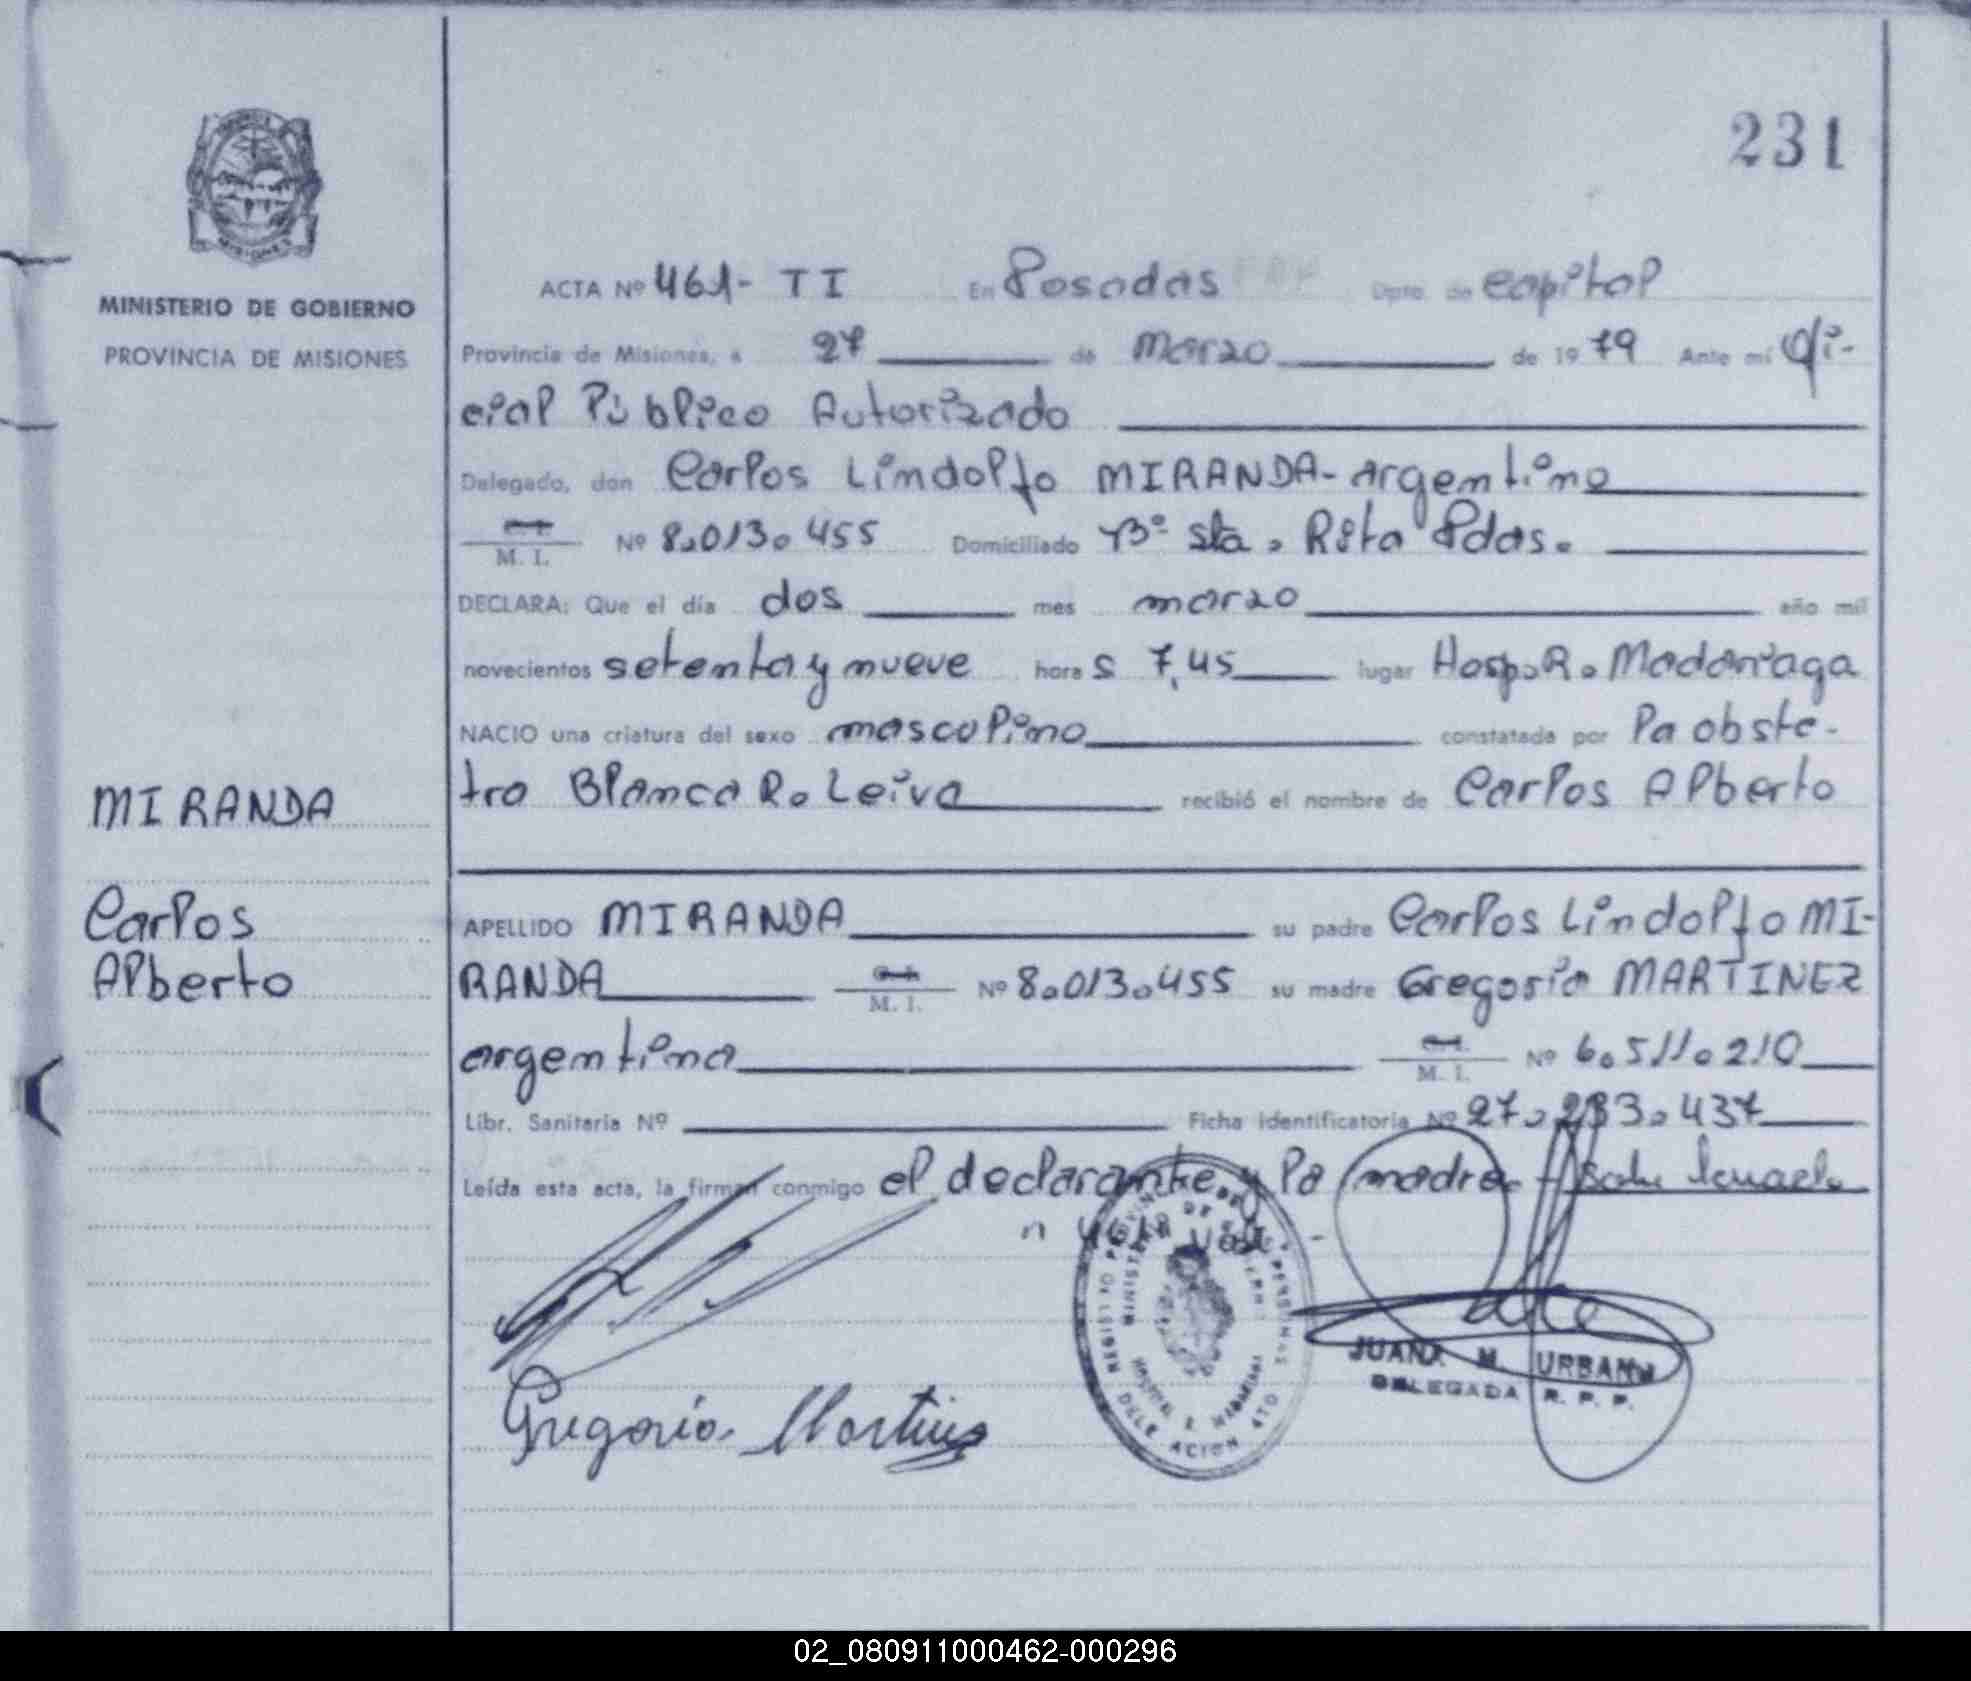 231
MINISTERIO DE GOBIERNO
PROVINCIA DE MISIONES
ACTA Nº 461- TI En Posadas Dpto. de Capital
Provincia de Misiones, a 27 de Marzo de 1979 Ante mí Ofi-
cial Público Autorizado
Delegado, don Carlos Lindolfo MIRANDA- argentino
M. I. Nº 8.013.455 Domiciliado Bº Sta. Rita Pdas.
DECLARA: Que el día dos mes marzo año mil
novecientos setenta y nueve hora s 7,45 lugar Hosp. R. Madariaga
NACIO una criatura del sexo masculino constatada por la obste-
tra Blanca R. Leiva recibió el nombre de Carlos Alberto
MIRANDA
Carlos
Alberto
APELLIDO MIRANDA su padre Carlos Lindolfo MI-
RANDA M. I. Nº 8.013.455 su madre Gregoria MARTINEZ
argentina M. I. Nº 6.511.210
Libr. Sanitaria Nº Ficha Identificatoria Nº 27.233.437
Leída esta acta, la firman conmigo el declarante y la madre.
Gregoria Martinez
JUANA M. URBAN
DELEGADA R. P. P.
02_080911000462-000296